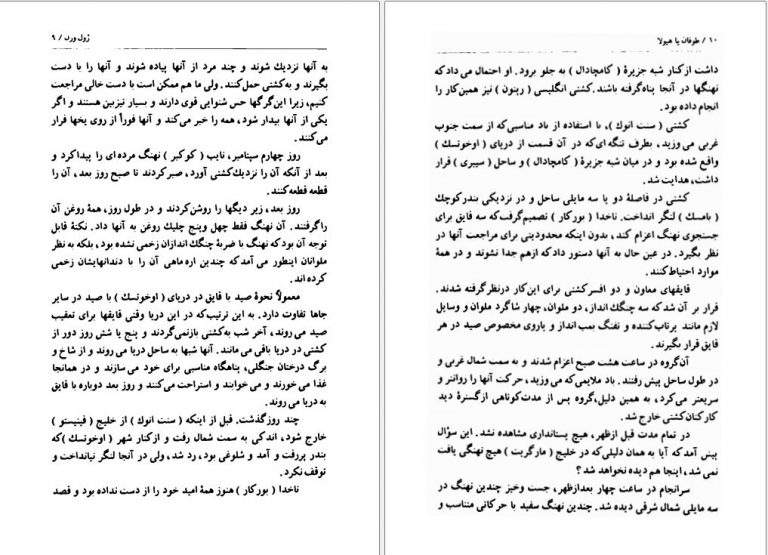 ژول ورن / ۹
به آنها نزدیك شوند و چند مرد از آنها پیاده شوند و آنها را با دست
بگیرند و به‌کشتی حمل‌کنند. ولی ما هم ممکن است با دست خالی مراجعت
کنیم، زیرا این‌گرگها حس شنوایی قوی دارند و بسیار تیزبین هستند و اگر
یکی از آنها بیدار شود، همه را خبر می‌کند و آنها فوراً از روی یخها فرار
می‌کنند.
روز چهارم سپتامبر، نایب ( کوکبر ) نهنگ مرده‌ای را پیداکرد و
بعد از آنکه آن را نزدیك‌کشتی آورد، صبرکردند تا صبح روز بعد، آن را
قطعه قطعه‌کنند.
روز بعد، زیر دیگها را روشن‌کردند و در طول روز، همهٔ روغن آن
راگرفتند. آن نهنگ فقط چهل وپنج چلیك روغن به آنها داد. نکتهٔ قابل
توجه آن بودکه نهنگ با ضربهٔ چنگك اندازان زخمی نشده بود، بلکه به نظر
ملوانان اینطور می‌آمدکه چندین اره‌ماهی آن را با دندانهایشان زخمی
کرده‌اند.
معمولاً نحوهٔ صید با قایق در دریای ( اوخوتسك ) با صید در سایر
جاها تفاوت دارد. به این ترتیب‌که در این دریا وقتی قایقها برای تعقیب
صید می‌روند، آخر شب به‌کشتی بازنمی‌گردند و پنج یا شش روز دور از
کشتی در دریا باقی می‌مانند. آنها شبها به ساحل دریا می‌روند و از شاخ و
برگ درختان جنگلی، پناهگاه مناسبی برای خود می‌سازند و در همانجا
غذا می‌خورند و می‌خوابند و استراحت می‌کنند و روز بعد دوباره با قایق
به دریا می‌روند.
چند روزگذشت. قبل از اینکه ( سنت انوك ) از خلیج ( فینیستو )
خارج شود، اندکی به سمت شمال رفت و ازکنار شهر ( اوخوتسك )که
بندر پررفت و آمد و شلوغی بود، رد شد، ولی در آنجا لنگر نیانداخت و
توقف نکرد.
ناخدا ( بورکار ) هنوز همهٔ امید خود را از دست نداده بود و قصد
۱۰ / طوفان یا هیولا
داشت ازکنار شبه جزیرهٔ ( کامچادال ) به جلو برود. او احتمال می‌دادکه
نهنگها در آنجا پناه‌گرفته باشند.کشتی انگلیسی ( رپتون ) نیز همین‌کار را
انجام داده بود.
کشتی ( سنت انوك )، با استفاده از باد مناسبی‌که از سمت جنوب
غربی می‌وزید، بطرف تنگه‌ای‌که در آن قسمت از دریای ( اوخوتسك )
واقع شده بود و در میان شبه جزیرهٔ ( کامچادال ) و ساحل ( سیبری ) قرار
داشت، هدایت شد.
کشتی در فاصلهٔ دو یا سه مایلی ساحل و در نزدیکی بندرکوچك
( یامسك ) لنگر انداخت. ناخدا ( بورکار ) تصمیم‌گرفت‌که سه قایق برای
جستجوی نهنگ اعزام کند، بدون اینکه محدودیتی برای مراجعت آنها در
نظر بگیرد. در عین حال به آنها دستور دادکه ازهم جدا نشوند و در همهٔ
موارد احتیاط‌کنند.
قایقهای معاون و دو افسرکشتی برای این‌کار درنظرگرفته شدند.
قرار بر آن شدکه سه چنگك انداز، دو ملوان، چهار شاگرد ملوان و وسایل
لازم مانند پرتاب‌کننده و تفنگ بمب‌انداز و پاروی مخصوص صید در هر
قایق قرار بگیرند.
آن‌گروه در ساعت هشت صبح اعزام شدند و به سمت شمال غربی و
در طول ساحل پیش رفتند. باد ملایمی‌که می‌وزید، حرکت آنها را روانتر و
سریعتر می‌کرد، به همین دلیل،گروه پس از مدت‌کوتاهی ازگسترهٔ دید
کارکنان‌کشتی خارج شد.
در تمام مدت قبل ازظهر، هیچ پستانداری مشاهده نشد. این سؤال
پیش آمدکه آیا به همان دلیلی‌که در خلیج ( مارگریت ) هیچ نهنگی یافت
نمی‌شد، اینجا هم دیده نخواهد شد ؟
سرانجام در ساعت چهار بعدازظهر، جست وخیز چندین نهنگ در
سه مایلی شمال شرقی دیده شد. چندین نهنگ سفید با حرکاتی متناسب و